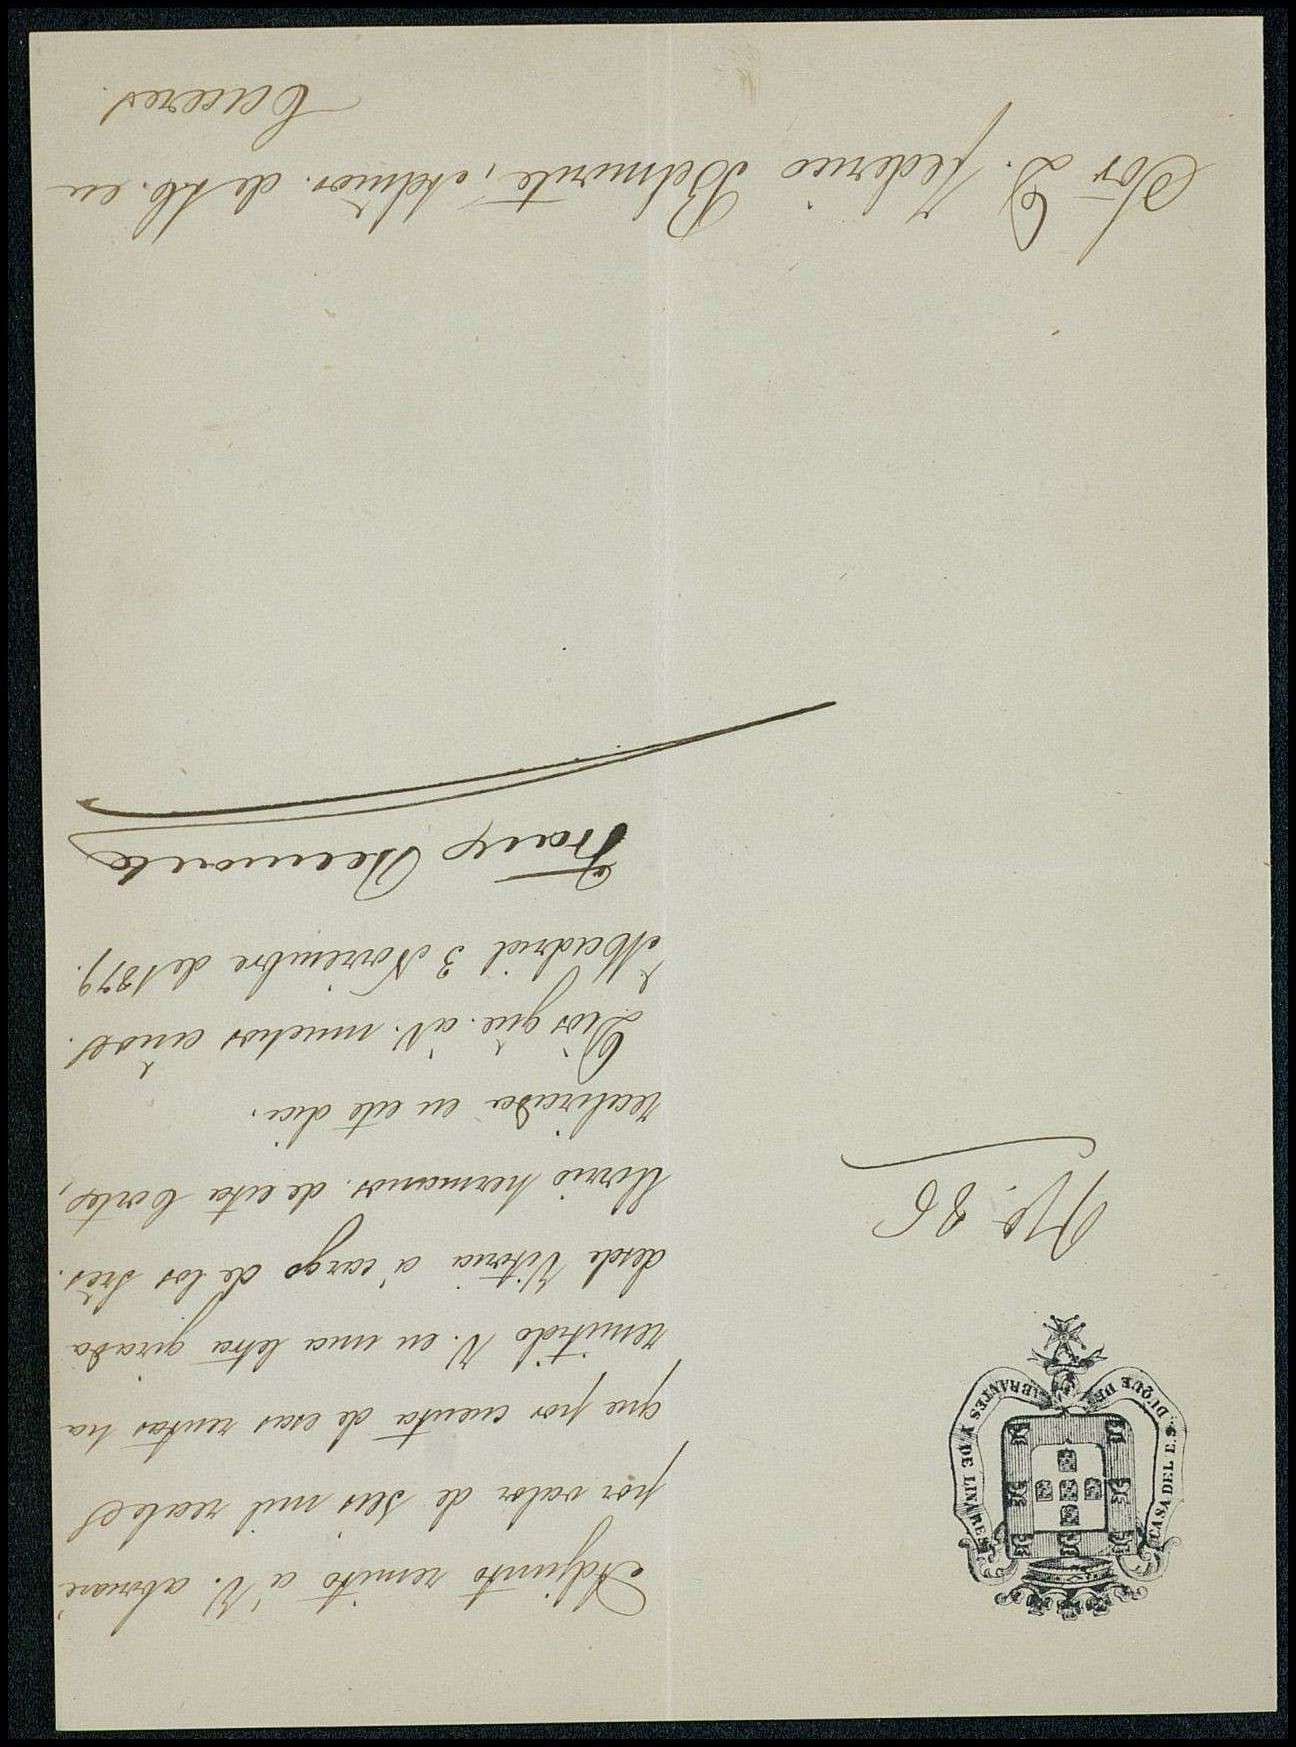 CASA DEL E. S. DUQUE DE ABRANTES Y DE LINARES
Nº. 86
Adjunto remito á V. abonaré
por valor de seis mil reales
que por cuenta de esas rentas ha
remitido V. en una letra girada
desde Vitoria á cargo de los Sres.
hermanos de esta Corte,
realizada en este dia.
Dios gue. á V. muchos años.
Madrid 3 Noviembre de 1879.
Sor. D. Federico Belmonte, Admor. de S.E. en
Caceres.